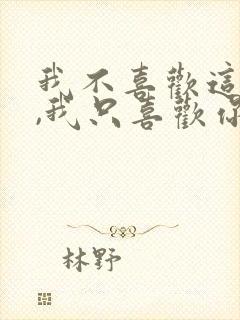 我不喜歡這
,我只喜歡你
林野